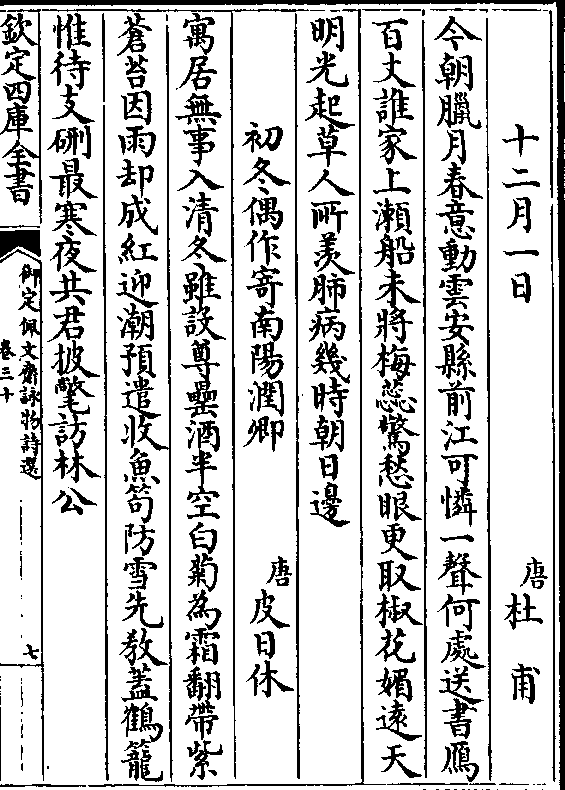 十二月一日 唐 杜甫
今朝臘月春意動雲安縣前江可憐一聲何處送書鴈
百丈誰家上瀬船未將梅蕊驚愁眼更取椒花媚遠天
明光起草人所羡肺病幾時朝日邊
初冬偶作寄南陽潤卿 唐 皮日休
寓居無事入清冬雖設尊罍酒半空白菊為霜翻帶紫
蒼苔因雨却成紅迎潮預遣收魚笱防雪先教蓋鶴籠
惟待支硎最寒夜共君披氅訪林公
欽定四庫全書
御定佩文齋詠物詩選
卷三十
七